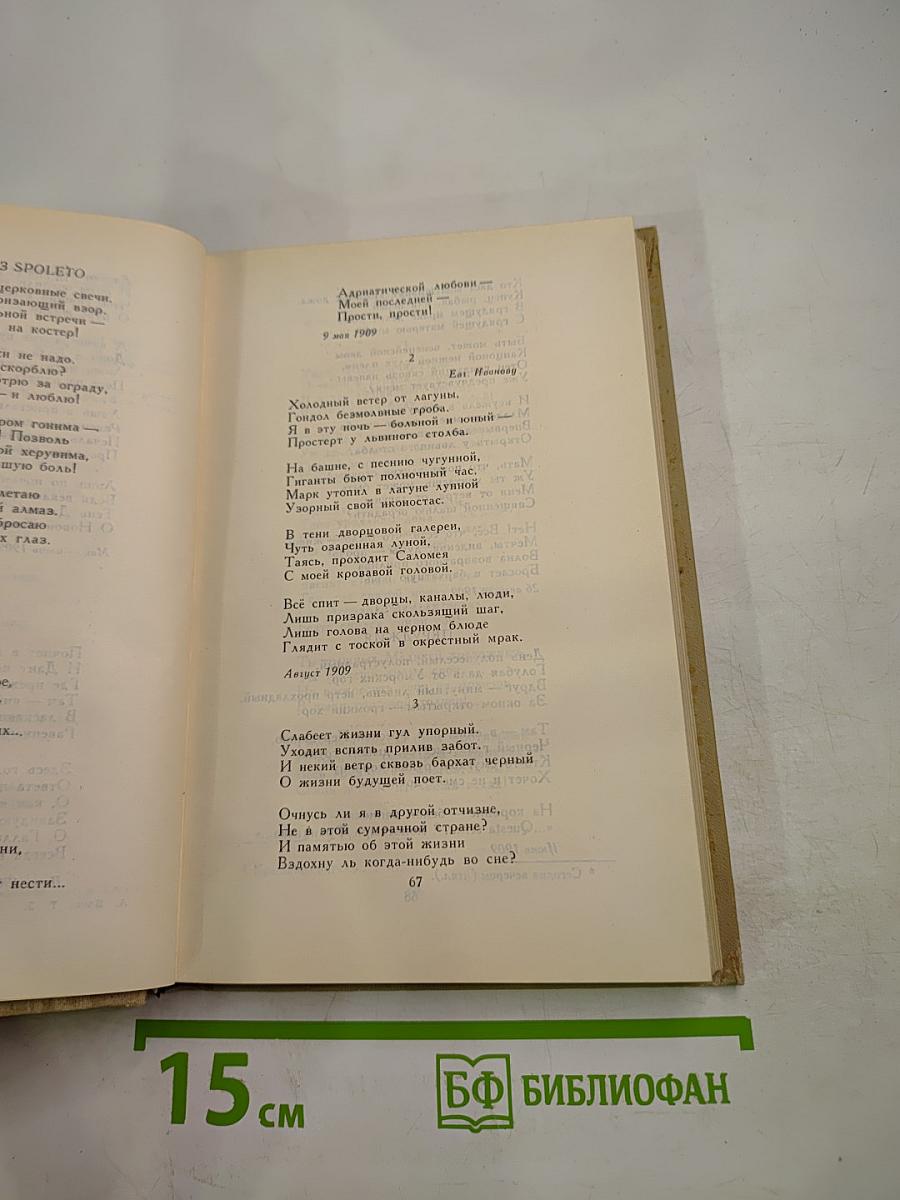 З SPOLETO
церковные свечи.
нзающий взор.
ной встречи —
на костер!
си не надо.
скорблю?
трю за ограду,
— и люблю!
ром гонима —
! Позволь
ой херувима,
шую боль!
летаю
й алмаз.
бросаю
х глаз.
ре,
х...
ни,
нести...
Адриатической любови —
Моей последней —
Прости, прости!
9 мая 1909
2
Евг. Иванову
Холодный ветер от лагуны,
Гондол безмолвные гроба.
Я в эту ночь — больной и юный —
Простерт у львиного столба.
На башне, с песнию чугунной,
Гиганты бьют полночный час.
Марк утопил в лагуне лунной
Узорный свой иконостас.
В тени дворцовой галереи,
Чуть озаренная луной,
Таясь, проходит Саломея
С моей кровавой головой.
Всё спит — дворцы, каналы, люди,
Лишь призрака скользящий шаг,
Лишь голова на черном блюде
Глядит с тоской в окрестный мрак.
Август 1909
3
Слабеет жизни гул упорный.
Уходит вспять прилив забот.
И некий ветр сквозь бархат черный
О жизни будущей поет.
Очнусь ли я в другой отчизне,
Не в этой сумрачной стране?
И памятью об этой жизни
Вздохну ль когда-нибудь во сне?
67
15 см
БФ БИБЛИОФАН